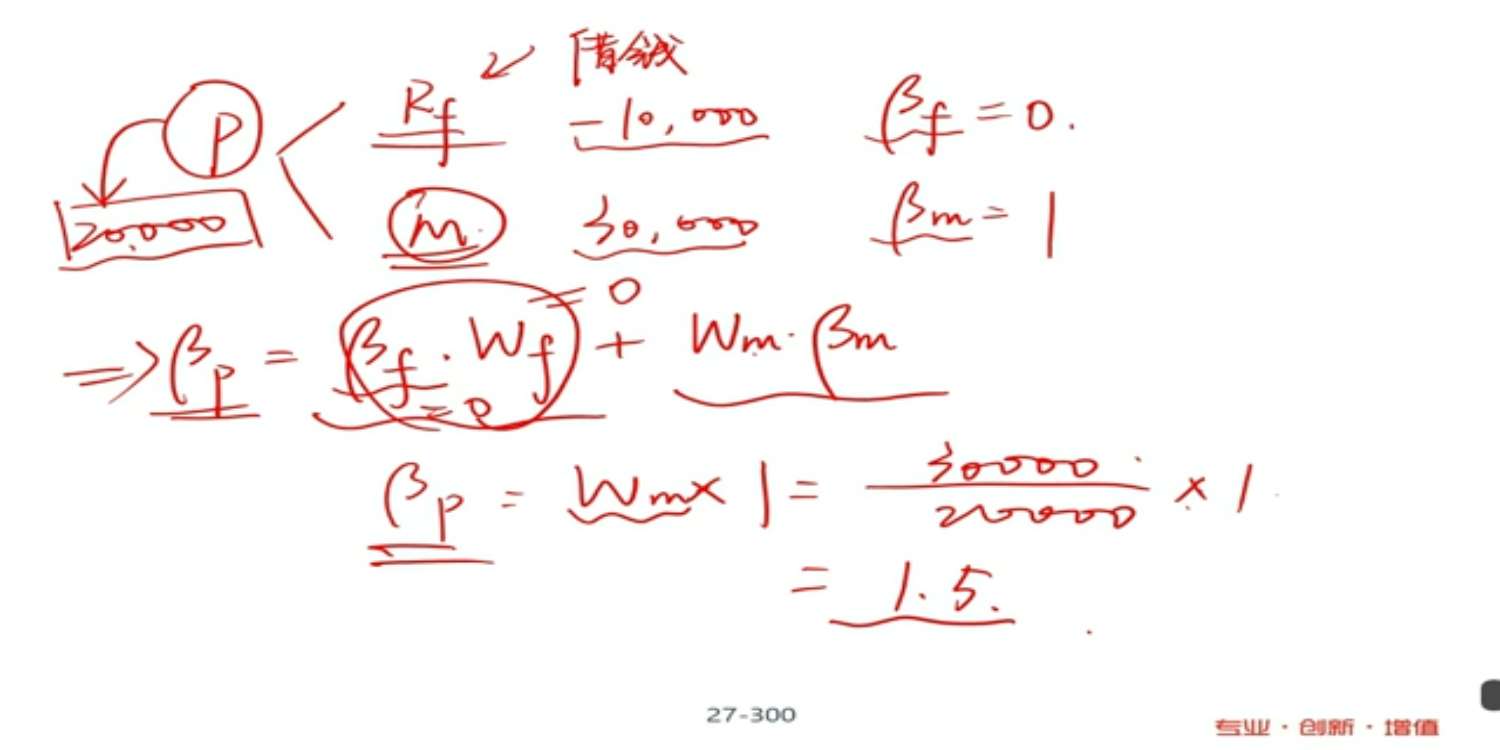 借钱
P Rf -10,000 βf = 0.
20,000 m 30,000 βm = 1
= 0
⇒ βp = βf · Wf + Wm · βm
= 0
βp = Wm × 1 = 30000/20000 × 1
= 1.5.
27-300
专业·创新·增值